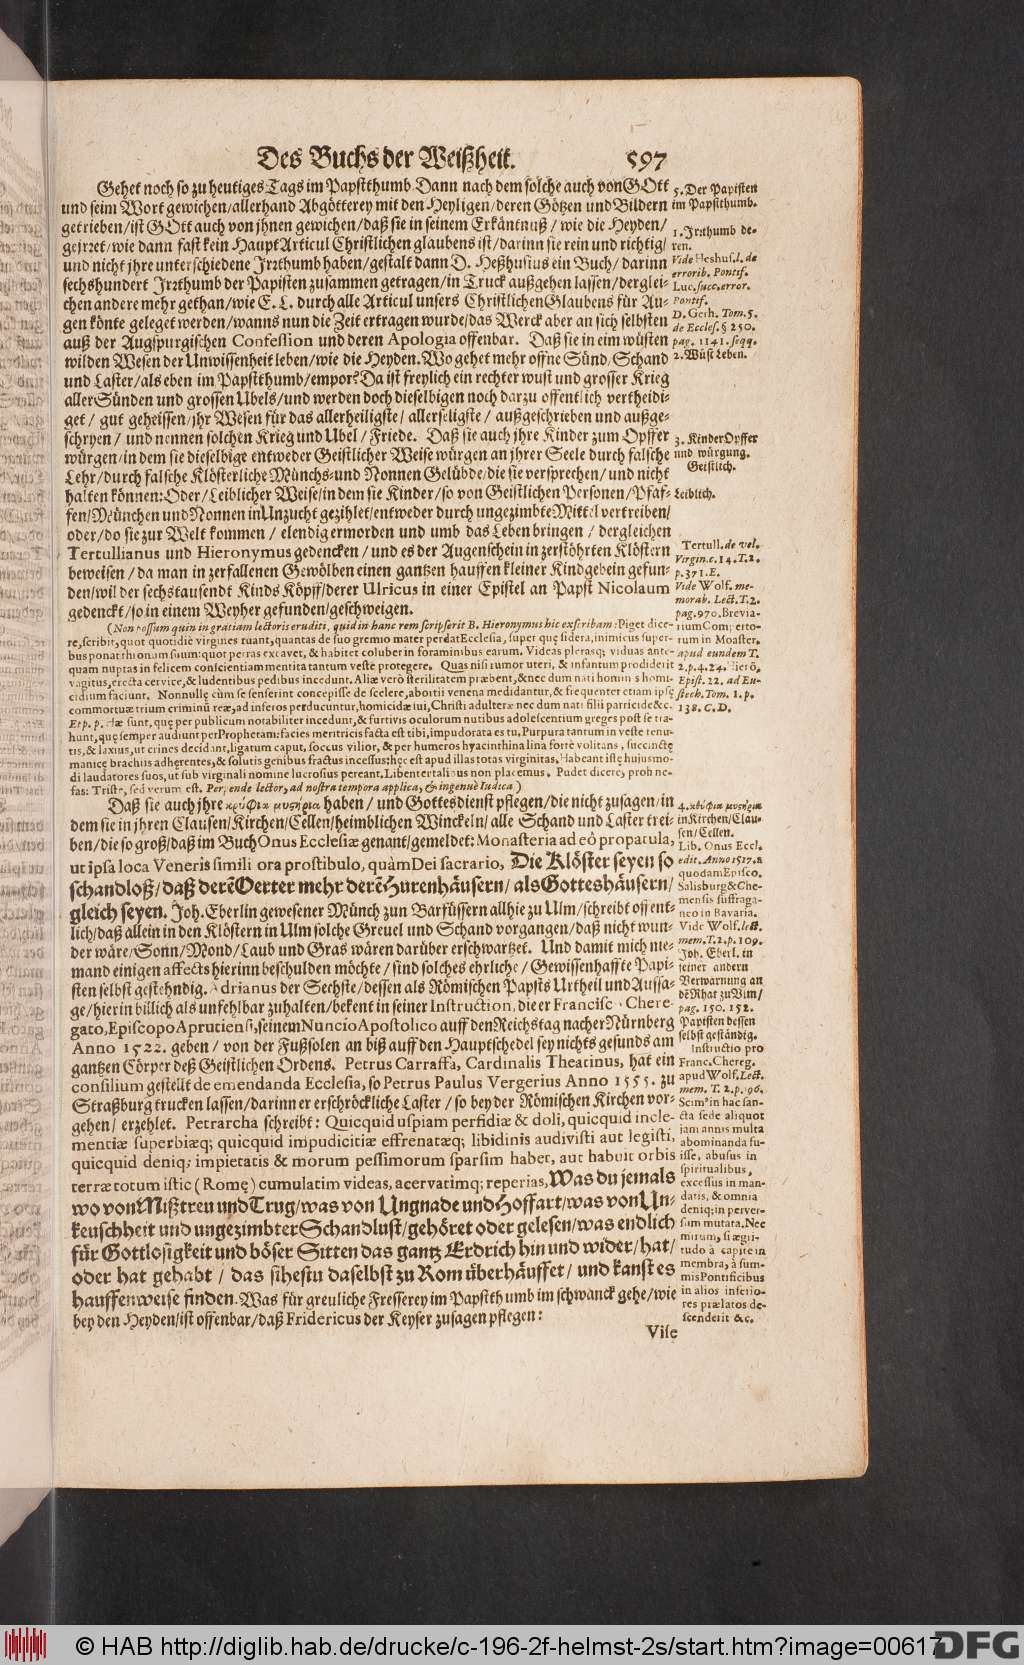 Des Buchs der Weißheit. 597
Gehet noch so zu heutiges Tags im Papstthumb. Dann nach dem solche auch von GOtt
und seim Wort gewichen/allerhand Abgötterey mit den Heyligen/deren Götzen und Bildern
getrieben/ist GOtt auch von jhnen gewichen/daß sie in seinem Erkäntnuß/wie die Heyden/
gejrret/wie dann fast kein Haupt Articul Christlichen glaubens ist/darinn sie rein und richtig/
und nicht jhre unterschiedene Jrrthumb haben/gestalt dann D. Heßhusius ein Buch/darinn
sechshundert Jrrthumb der Papisten zusammen getragen/in Truck außgehen lassen/derglei-
chen andere mehr gethan/wie E. L. durch alle Articul unsers Christlichen Glaubens für Au-
gen könte geleget werden/wanns nun die Zeit ertragen wurde/das Werck aber an sich selbsten
auß der Augspurgischen Confession und deren Apologia offenbar. Daß sie in eim wüsten
wilden Wesen der Unwissenheit leben/wie die Heyden. Wo gehet mehr offne Sünd/Schand
und Laster/als eben im Papstthumb/empor? Da ist freylich ein rechter wust und grosser Krieg
aller Sünden und grossen Ubels/und werden doch dieselbigen noch darzu offentlich vertheidi-
get/gut geheissen/jhr Wesen für das allerheiligste/allerseligste/außgeschrieben und außge-
schryen/und nennen solchen Krieg und Ubel/Friede. Daß sie auch jhre Kinder zum Opffer
würgen/in dem sie dieselbige entweder Geistlicher Weise würgen an jhrer Seele durch falsche
Lehr/durch falsche Klösterliche Münchs- und Nonnen Gelübde/die sie versprechen/und nicht
halten können: Oder/Leiblicher Weise/in dem sie Kinder/so von Geistlichen Personen/Pfaf-
fen/München und Nonnen in Unzucht gezihlet/entweder durch ungezimbte Mittel vertreiben/
oder/do sie zur Welt kommen/elendig ermorden und umb das Leben bringen/dergleichen
Tertullianus und Hieronymus gedencken/und es der Augenschein in zerstöhrten Klöstern
beweisen/da man in zerfallenen Gewölben einen gantzen hauffen kleiner Kindgebein gefun-
den/wil der sechstausendt Kinds Köpff/derer Ulricus in einer Epistel an Papst Nicolaum
gedenckt/so in einem Weyher gefunden/geschweigen.
(Non possum quin in gratiam lectoris eruditi, quid in hanc rem scripserit B. Hieronymus hic exscribam: Piget dice-
re, scribit, quot quotidiè virgines ruant, quantas de suo gremio mater perdat Ecclesia, super quę sidera, inimicus super-
bus ponat thronum suum: quot petras excavet, & habitet coluber in foraminibus earum. Videas plerasq; viduas ante-
quam nuptas infelicem conscientiam mentita tantum veste protegere. Quas nisi tumor uteri, & infantum prodiderit
vagitus, erecta cervice, & ludentibus pedibus incedunt. Aliæ verò sterilitatem præbent, & nec dum nati hominis homi-
cidium faciunt. Nonnullę cùm se senserint concepisse de scelere, abortii venena medidantur, & frequenter etiam ipsę
commortuæ trium criminũ reæ, ad inferos perducuntur, homicidæ sui, Christi adulteræ nec dum nati filii parricidę &c.
Et p. p. Hæ sunt, quę per publicum notabiliter incedunt, & furtivis oculorum nutibus adolescentium greges post se tra-
hunt, quę semper audiunt per Prophetam: facies meritricis facta est tibi, impudorata es tu, Purpura tantum in veste tenu-
tis, & laxius, ut crines decidant, ligatum caput, soccus vilior, & per humeros hyacinthina lina fortè volitans, succinctę
manicę brachiis adhęrentes, & solutis genibus fractus incessus: hęc est apud illas totas virginitas. Habeant istę hujusmo-
di laudatores suos, ut sub virginali nomine lucrosius pereant. Libenter talibus non placemus. Pudet dicere, proh ne-
fas: Triste, sed verum est. Perpende lector, ad nostra tempora applica, & ingenuè Iudica)
Daß sie auch jhre κρύφια μυςήρια haben/und Gottesdienst pflegen/die nicht zusagen/in
dem sie in jhren Clausen/Kirchen/Cellen/heimblichen Winckeln/alle Schand und Laster trei-
ben/die so groß/daß im Buch Onus Ecclesiæ genant/gemeldet: Monasteria ad eò propatula,
ut ipsa loca Veneris simili ora prostibulo, quàm Dei sacrario, Die Klöster seyen so
schandloß/daß derẽ Oerter mehr derẽ Hurenhäusern/als Gotteshäusern/
gleich seyen. Joh. Eberlin gewesener Münch zun Barfüssern allhie zu Ulm/schreibt offent-
lich/daß allein in den Klöstern in Ulm solche Greuel und Schand vorgangen/daß nicht wun-
der wäre/Sonn/Mond/Laub und Gras wären darüber erschwartzet. Und damit mich nie-
mand einigen affects hierinn beschulden möchte/sind solches ehrliche/Gewissenhaffte Papi-
sten selbst gestehndig. Adrianus der Sechste/dessen als Römischen Papsts Urtheil und Aussa-
ge/hierin billich als unfehlbar zuhalten/bekent in seiner Instruction, die er Francisco Chere-
gato, Episcopo Aprutiensi, seinem Nuncio Apostolico auff den Reichstag nacher Nürnberg
Anno 1522. geben/von der Fußsolen an biß auff den Hauptschedel sey nichts gesunds am
gantzen Cörper deß Geistlichen Ordens. Petrus Carraffa, Cardinalis Theatinus, hat ein
consilium gestellt de emendanda Ecclesia, so Petrus Paulus Vergerius Anno 1555. zu
Straßburg trucken lassen/darinn er erschröckliche Laster/so bey der Römischen Kirchen vor-
gehen/erzehlet. Petrarcha schreibt: Quicquid uspiam perfidiæ & doli, quicquid incle-
mentiæ superbiæq; quicquid impudicitiæ effrenatæq; libidinis audivisti aut legisti,
quicquid deniq; impietatis & morum pessimorum sparsim habet, aut habuit orbis
terræ totum istic (Romę) cumulatim videas, acervatimq; reperias, Was du jemals
wo von Mißtreu und Trug/was von Ungnade und Hoffart/was von Un-
keuschheit und ungezimbter Schandlust/gehöret oder gelesen/was endlich
für Gottlosigkeit und böser Sitten das gantz Erdrich hin und wider/hat/
oder hat gehabt/das sihestu daselbst zu Rom überhäuffet/und kanst es
hauffenweise finden. Was für greuliche Fresserey im Papstthumb im schwanck gehe/wie
bey den Heyden/ist offenbar/daß Fridericus der Keyser zusagen pflegen:
Vise
5. Der Papisten
im Papstthumb.
1. Jrrthumb de-
ren.
Vide Heshus. l. de
errorib. Pontif.
Luc. succ. error.
Pontif.
D. Gerh. Tom. 5.
de Eccles. § 250.
pag. 1141. seqq.
2. Wüst Leben.
3. Kinder Opffer
und würgung.
Geistlich.
Leiblich.
Tertull. de vel.
Virgin. c. 14. T. 2.
p. 371. E.
Vide Wolf. me-
morab. Lect. T. 2.
pag. 970. Brevia-
rium Com; erto-
rum in Moaster.
apud eundem T.
2. p. 4. 24. Hierõ.
Epist. 22. ad Eu-
stoch. Tom. 1. p.
138. C. D.
4. κρύφια μυςήρια
in Kirchen/Clau-
sen/Cellen.
Lib. Onus Eccl.
edit. Anno 1517. a
quodam Episco.
Salisburg & Che-
mensis suffraga-
neo in Bavaria.
Vide Wolf. lect.
mem. T. 2. p. 109.
Joh. Eberl. in
seiner andern
Verwarnung an
dẽ Rhat zu Ulm/
pag. 150. 152.
Papisten dessen
selbst geständig.
Instructio pro
Franc. Chereg.
apud Wolf. Lect.
mem. T. 2. p. 96.
Scim9 in hac san-
cta sede aliquot
jam annis multa
abominanda fu-
isse, abusus in
spiritualibus,
excessus in man-
datis, & omnia
deniq; in perver-
sum mutata. Nec
mirum, si ægri-
tudo à capite in
membra, à sum-
mis Pontificibus
in alios inferio-
res prælatos de-
scenderit &c.
© HAB http://diglib.hab.de/drucke/c-196-2f-helmst-2s/start.htm?image=00617
DFG